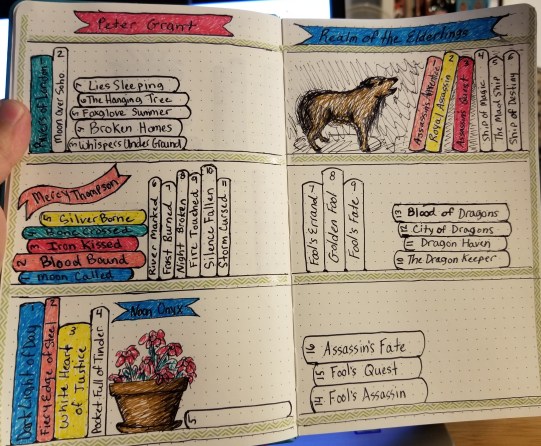 Peter Grant
Rivers of London
Moon Over Soho 2
7 Lies Sleeping
6 The Hanging Tree
5 Foxglove Summer
4 Broken Homes
3 Whispers Under Ground
Mercy Thompson
5 Silver Borne
4 Bone Crossed
3 Iron Kissed
2 Blood Bound
1 Moon Called
River Marked 6
Frost Burned 7
Night Broken 8
Fire Touched 9
Silence Fallen 10
Storm Cursed 11
Noon Onyx
Dark Light of Day 1
Fiery Edge of Steel 2
White Heart of Justice 3
Pocket Full of Tinder 4
5
Realm of the Elderlings
Assassin's Apprentice 1
Royal Assassin 2
Assassin's Quest 3
Ship of Magic 4
The Mad Ship 5
Ship of Destiny 6
Fool's Errand 7
Golden Fool 8
Fool's Fate 9
13 Blood of Dragons
12 City of Dragons
11 Dragon Haven
10 The Dragon Keeper
16 Assassin's Fate
15 Fool's Quest
14 Fool's Assassin